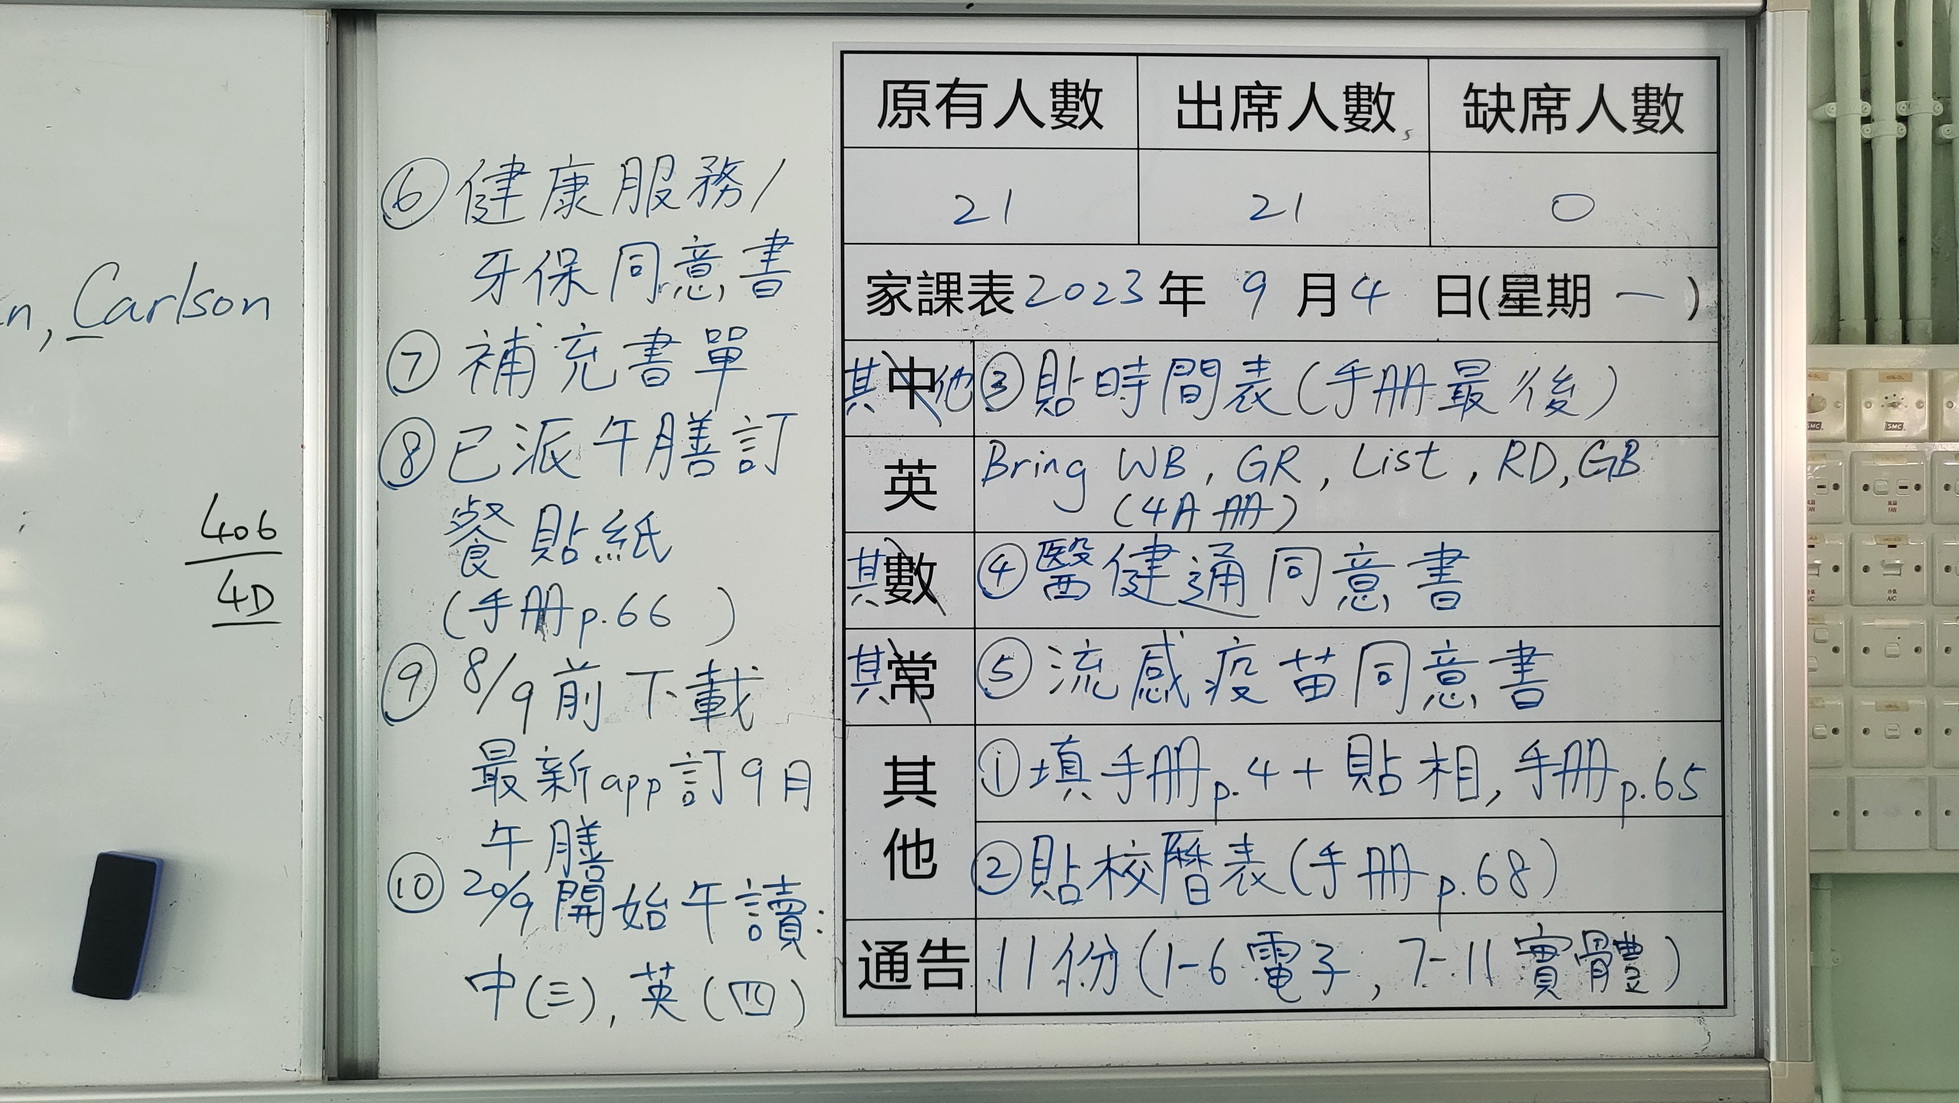 n, Carlson
406
4D
⑥健康服務/
牙保同意書
⑦補充書單
⑧已派午膳訂
餐貼紙
(手册p.66)
⑨8/9前下載
最新app訂9月
午膳
⑩20/9開始午讀:
中(三), 英(四)
原有人數 出席人數 缺席人數
21 21 0
家課表2023年9月4日(星期一)
其中他 ③貼時間表(手册最後)
英 Bring WB, GR, List, RD, GB
(4A册)
其數 ④醫健通同意書
其常 ⑤流感疫苗同意書
其他 ①填手册p.4+貼相,手册p.65
②貼校曆表(手册p.68)
通告 11份(1-6電子, 7-11實體)